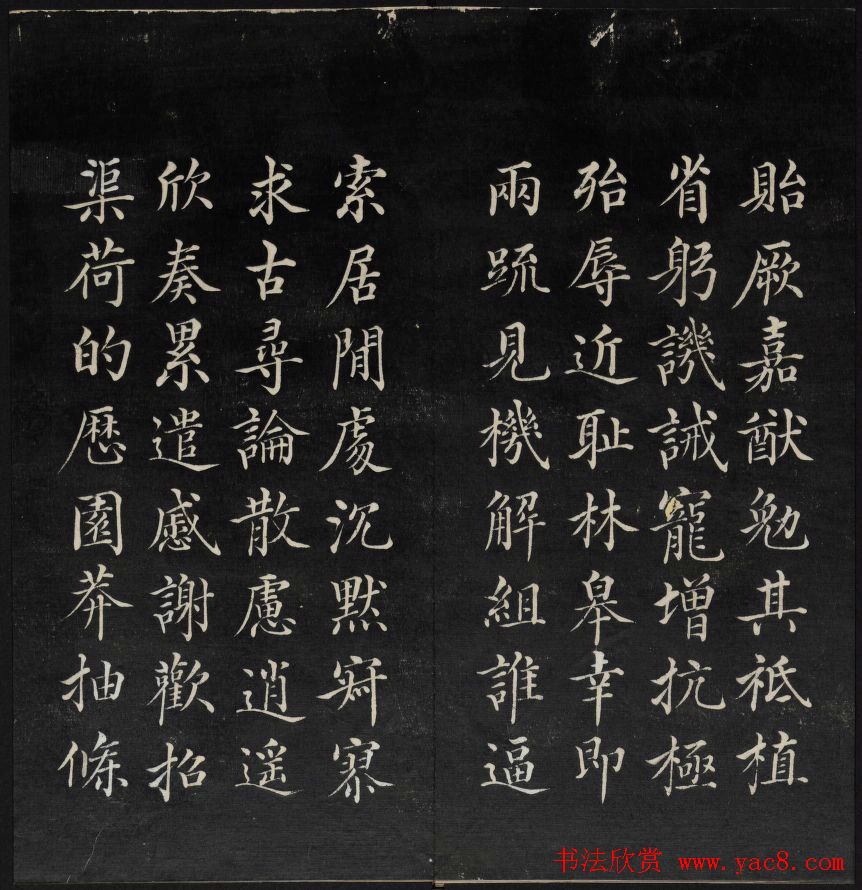 貽厥嘉猷勉其祗植
省躬譏誡寵增抗極
殆辱近耻林皋幸即
兩疏見機解組誰逼
索居閒處沉默寂寥
求古尋論散慮逍遥
欣奏累遣慼謝歡招
渠荷的歷園莽抽條
书法欣赏 www.yac8.com